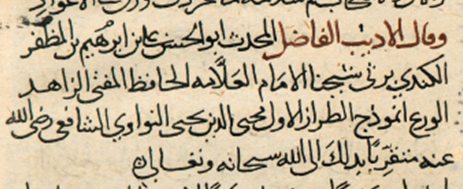 وقال الاديب الفاضل المحدث ابو الحسن علي بن ابرهيم بن المظفر
الكندي يرثي شيخنا الامام العلامه الحافظ المفتي الزاهد
الورع انموذج الطراز الاول محيي الدين يحيى النواوي الشافعي رضي الله
عنه متقربًا بذلك الى الله سبحانه وتعالى